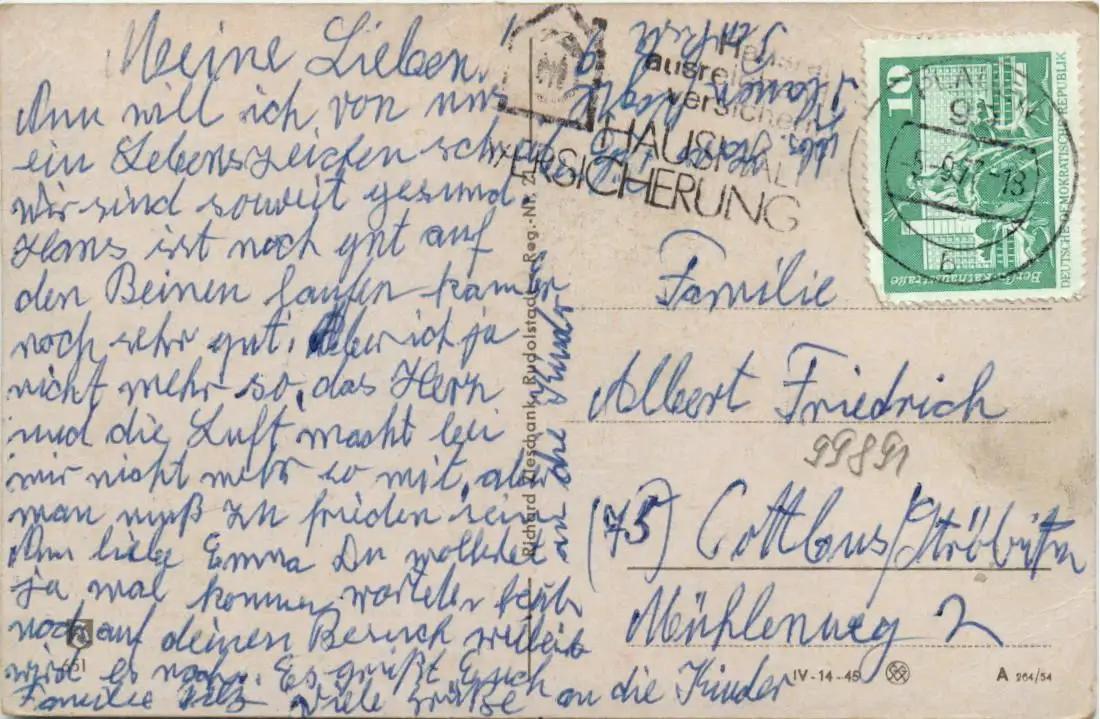 Meine Lieben,
Nun will ich von uns
ein Lebenszeichen
Wir sind soweit gesund
Hans ist noch gut auf
den Beinen laufen kan er
noch sehr gut. Aber ich ja
nicht mehr so, das Herz
und die Luft macht bei
mir nicht mehr so mit, aber
man muß zu frieden sein
Nun liebe Emma Du wolltest
ja mal kommen,
noch auf deinen Besuch
wird es noch. Es grüßt Euch
Familie Viele Grüße an die Kinder
an die Kinder
HAUSHALT
VERSICHERUNG
ausreichend
versichern
10
Berlin, Rathausstraße
DEUTSCHE DEMOKRATISCHE REPUBLIK
BERLIN
Familie
Albert Friedrich
99891
(75) Cottbus/Ströbitz
Mühlenweg 2
Reg.-Nr.
651
IV-14-45
A 264/54